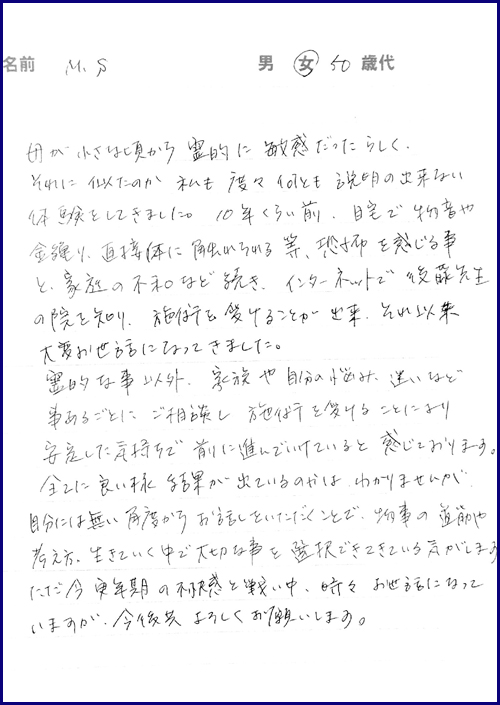 名前 M.S 男 女 50 歳代
母が小さな頃から霊的に敏感だったらしく、
それに似たのか私も度々何とも説明の出来ない
体験をしてきました。10年くらい前、自宅で物音や
金縛り、直接体に触れられる等、恐怖を感じる事
と、家庭の不和など続き、インターネットで後藤先生
の院を知り、施術を受けることが出来、それ以来
大変お世話になってきました。
霊的な事以外、家族や自分の悩み、迷いなど
事あるごとにご相談し施術を受けることにより
安定した気持ちで前に進んでいけていると感じております。
全てに良い様結果が出ているのかは、わかりませんが、
自分には無い角度からお話しをいただくことで、物事の道筋や
考え方、生きていく中で大切な事を選択できてきている気がします
ただ今更年期の不快感と戦い中、時々お世話になって
いますが、今後共よろしくお願いします。